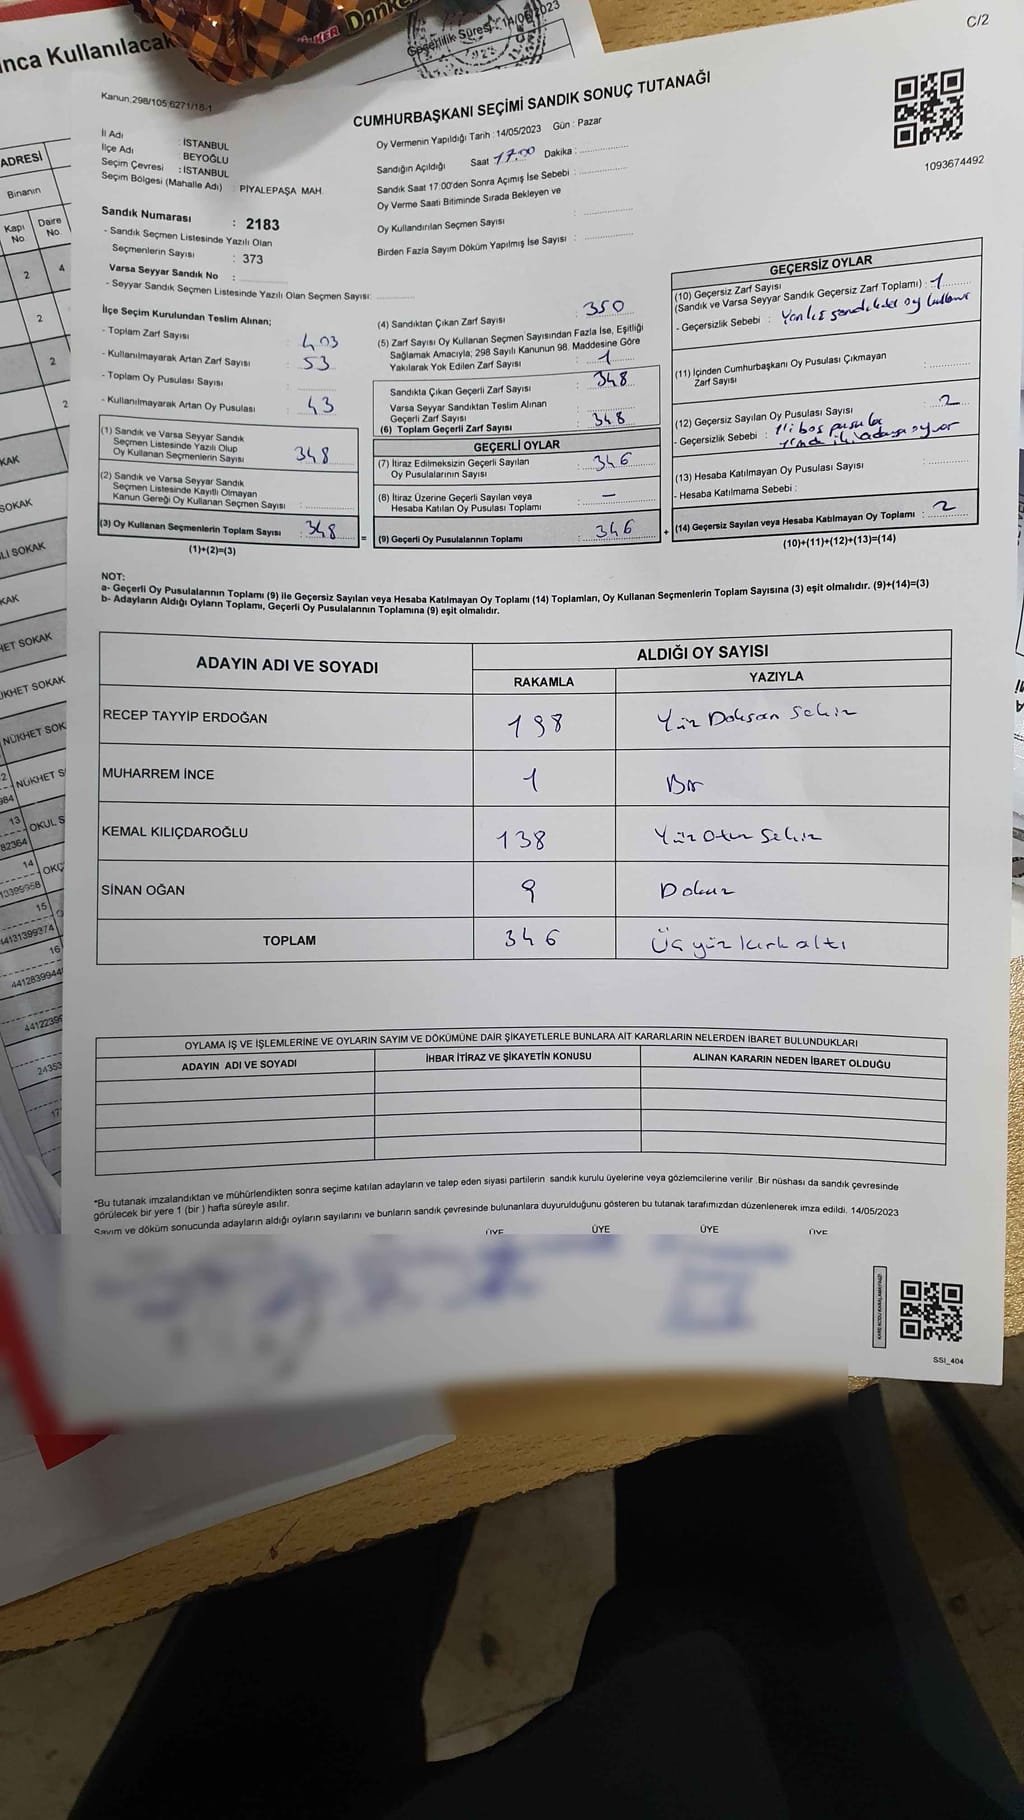 ınca Kullanılacak
Danke
Geçerlilik Süresi : 14/05/2023
C/2
Kanun:298/105,6271/18-1
CUMHURBAŞKANI SEÇİMİ SANDIK SONUÇ TUTANAĞI
1093674492
İl Adı : İSTANBUL
İlçe Adı BEYOĞLU
Seçim Çevresi : İSTANBUL
Seçim Bölgesi (Mahalle Adı) : PİYALEPAŞA MAH.
Sandık Numarası : 2183
- Sandık Seçmen Listesinde Yazılı Olan
Seçmenlerin Sayısı : 373
Varsa Seyyar Sandık No :
- Seyyar Sandık Seçmen Listesinde Yazılı Olan Seçmen Sayısı:
Oy Vermenin Yapıldığı Tarih : 14/05/2023 Gün : Pazar
Sandığın Açıldığı Saat 17.00 Dakika :
Sandık Saat 17.00'den Sonra Açımış İse Sebebi :
Oy Verme Saati Bitiminde Sırada Bekleyen ve
Oy Kullandırılan Seçmen Sayısı :
Birden Fazla Sayım Döküm Yapılmış İse Sayısı :
İlçe Seçim Kurulundan Teslim Alınan;
- Toplam Zarf Sayısı : 403
- Kullanılmayarak Artan Zarf Sayısı : 53
- Toplam Oy Pusulası Sayısı :
- Kullanılmayarak Artan Oy Pusulası : 43
(1) Sandık ve Varsa Seyyar Sandık
Seçmen Listesinde Yazılı Olup
Oy Kullanan Seçmenlerin Sayısı 348
(2) Sandık ve Varsa Seyyar Sandık
Seçmen Listesinde Kayıtlı Olmayan
Kanun Gereği Oy Kullanan Seçmen Sayısı :
(3) Oy Kullanan Seçmenlerin Toplam Sayısı : 348
(1)+(2)=(3)
=
(4) Sandıktan Çıkan Zarf Sayısı : 350
(5) Zarf Sayısı Oy Kullanan Seçmen Sayısından Fazla İse, Eşitliği
Sağlamak Amacıyla; 298 Sayılı Kanunun 98. Maddesine Göre
Yakılarak Yok Edilen Zarf Sayısı : 1
Sandıkta Çıkan Geçerli Zarf Sayısı : 348
Varsa Seyyar Sandıktan Teslim Alınan
Geçerli Zarf Sayısı :
(6) Toplam Geçerli Zarf Sayısı : 348
GEÇERLİ OYLAR
(7) İtiraz Edilmeksizin Geçerli Sayılan
Oy Pusulalarının Sayısı : 346
(8) İtiraz Üzerine Geçerli Sayılan veya
Hesaba Katılan Oy Pusulası Toplamı : —
(9) Geçerli Oy Pusulalarının Toplamı : 346
+
GEÇERSİZ OYLAR
(10) Geçersiz Zarf Sayısı
(Sandık ve Varsa Seyyar Sandık Geçersiz Zarf Toplamı) : 1
- Geçersizlik Sebebi : Yanlış sandıkta oy
(11) İçinden Cumhurbaşkanı Oy Pusulası Çıkmayan
Zarf Sayısı :
(12) Geçersiz Sayılan Oy Pusulası Sayısı : 2
- Geçersizlik Sebebi : boş pusula
(13) Hesaba Katılmayan Oy Pusulası Sayısı :
- Hesaba Katılmama Sebebi :
(14) Geçersiz Sayılan veya Hesaba Katılmayan Oy Toplamı : 2
(10)+(11)+(12)+(13)=(14)
NOT:
a- Geçerli Oy Pusulalarının Toplamı (9) ile Geçersiz Sayılan veya Hesaba Katılmayan Oy Toplamı (14) Toplamları, Oy Kullanan Seçmenlerin Toplam Sayısına (3) eşit olmalıdır. (9)+(14)=(3)
b- Adayların Aldığı Oyların Toplamı, Geçerli Oy Pusulalarının Toplamına (9) eşit olmalıdır.
ADAYIN ADI VE SOYADI ALDIĞI OY SAYISI
RAKAMLA YAZIYLA
RECEP TAYYİP ERDOĞAN 198 Yüz Doksan Sekiz
MUHARREM İNCE 1 Bir
KEMAL KILIÇDAROĞLU 138 Yüz Otuz Sekiz
SİNAN OĞAN 9 Dokuz
TOPLAM 346 Üç yüz kırk altı
OYLAMA İŞ VE İŞLEMLERİNE VE OYLARIN SAYIM VE DÖKÜMÜNE DAİR ŞİKAYETLERLE BUNLARA AİT KARARLARIN NELERDEN İBARET BULUNDUKLARI
ADAYIN ADI VE SOYADI İHBAR İTİRAZ VE ŞİKAYETİN KONUSU ALINAN KARARIN NEDEN İBARET OLDUĞU
*Bu tutanak imzalandıktan ve mühürlendikten sonra seçime katılan adayların ve talep eden siyasi partilerin sandık kurulu üyelerine veya gözlemcilerine verilir .Bir nüshası da sandık çevresinde
görülecek bir yere 1 (bir ) hafta süreyle asılır.
Sayım ve döküm sonucunda adayların aldığı oyların sayılarını ve bunların sandık çevresinde bulunanlara duyurulduğunu gösteren bu tutanak tarafımızdan düzenlenerek imza edildi. 14/05/2023
ÜYE ÜYE ÜYE ÜYE
SSI_404
ADRESİ
Binanın
Kapı No Daire No.
2 4
2
2
2
KAK
SOKAK
LI SOKAK
KAK
HET SOKAK
JKHET SOKAK
NÜKHET SOK
NÜKHET S
13 OKUL S
82364
14
13399958
15
44131399374
16